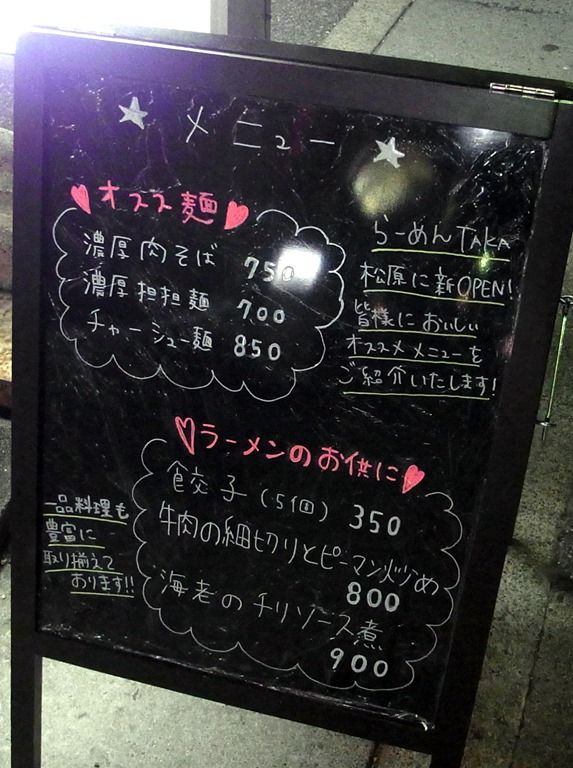 メニュー
オススメ麺
濃厚肉そば 750
濃厚担担麺 700
チャーシュー麺 850
らーめんTAKA
松原に新OPEN!
皆様においしい
オススメメニューを
ご紹介いたします!
ラーメンのお供に
餃子(5個) 350
牛肉の細切りとピーマン炒め
800
海老のチリソース煮
900
一品料理も
豊富に
取り揃えて
おります!!